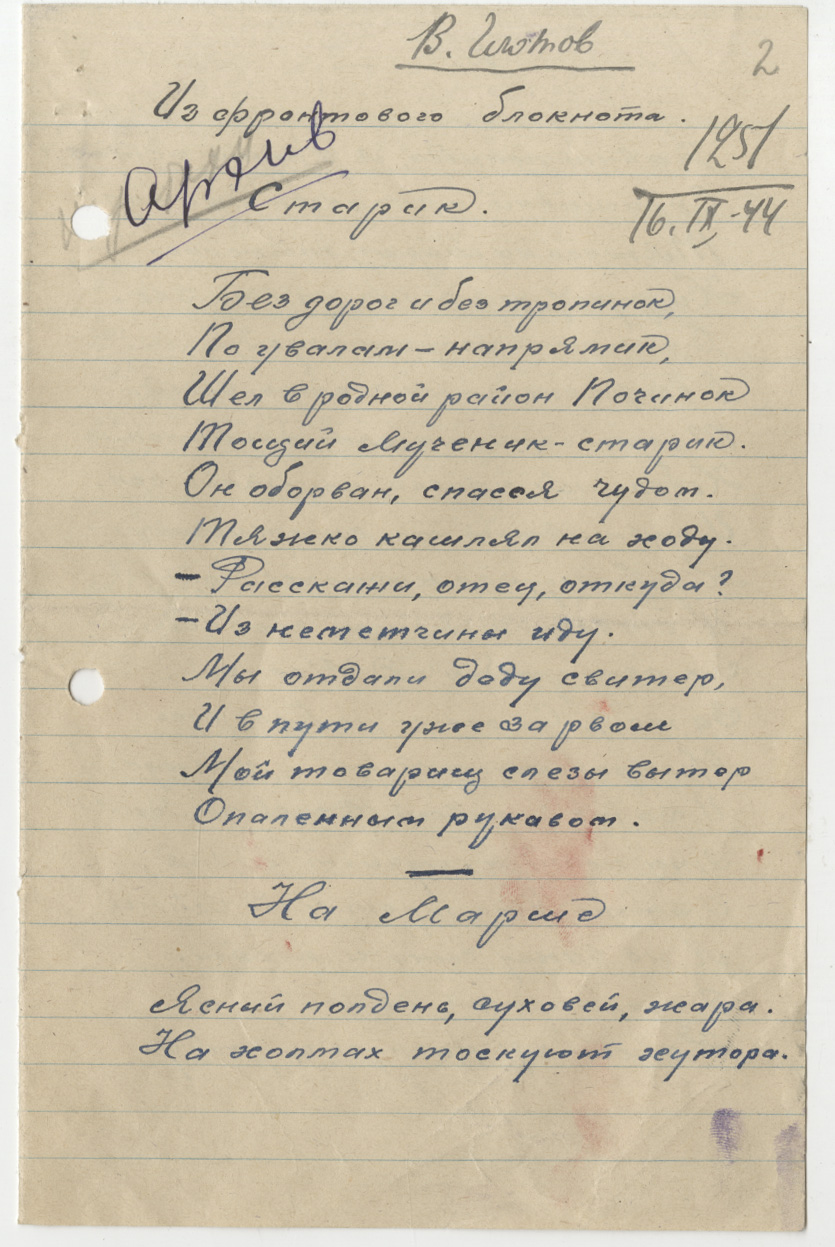 В. Глотов
2
Из фронтового блокнота.
Архив
1251
16.IX-44
Старик.
Без дорог и без тропинок,
По увалам – напрямик,
Шел в родной район Починок
Тощий мученик-старик.
Он оборван, спасся чудом.
Тяжко кашлял на ходу.
– Расскажи, отец, откуда?
– Из неметчины иду.
Мы отдали деду свитер,
И в пути уже за рвом
Мой товарищ слезы вытер
Опаленным рукавом.
На Марше
Ясный полдень, суховей, жара.
На холмах тоскуют хутора.